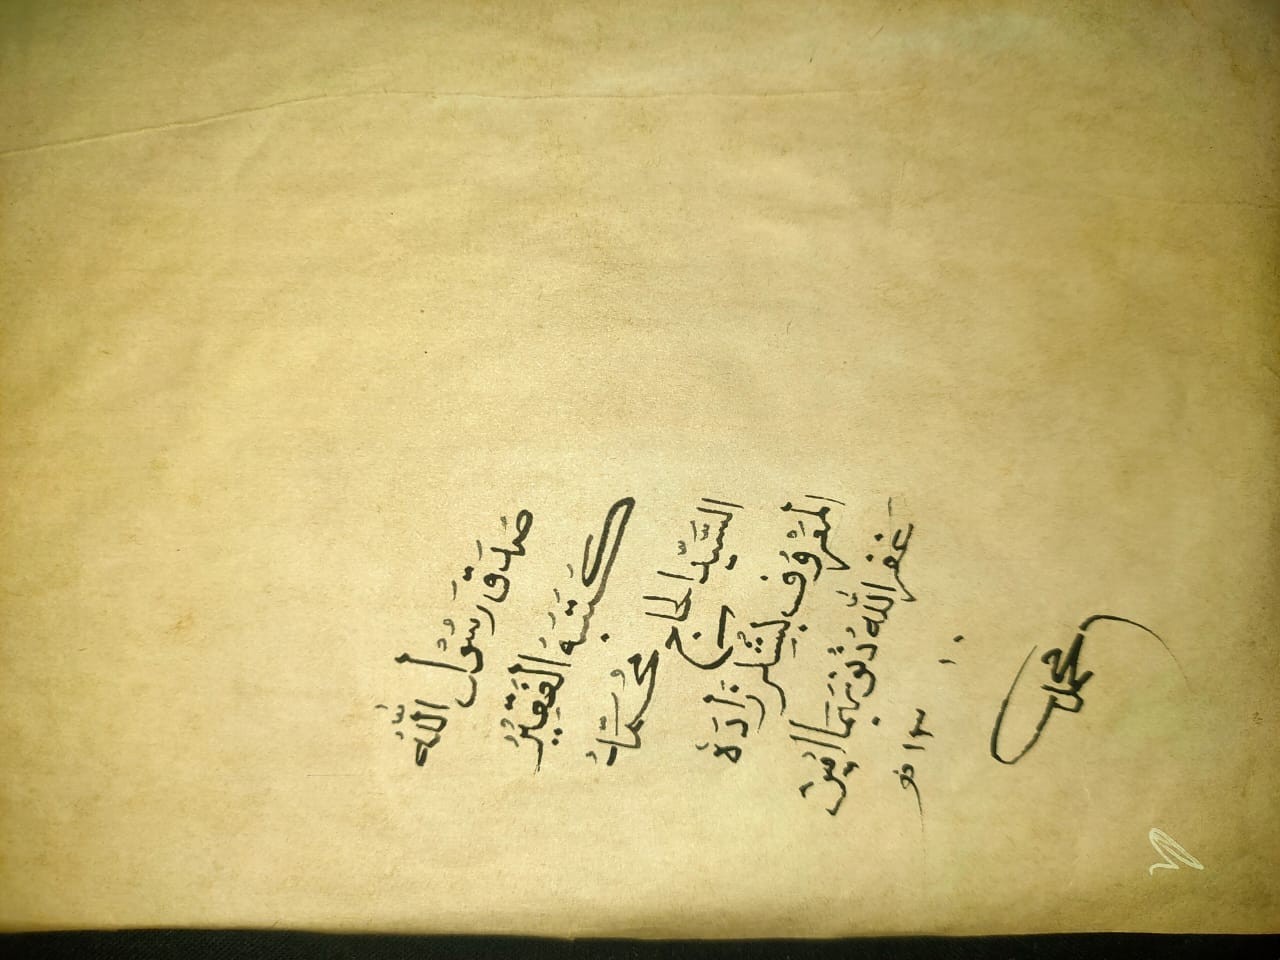 صَدَقَ رَسُولُ اللّٰه
كَتَبَهُ الْفَقِيرُ
السَّيِّد الحاج مُحَمَّد
المَعْرُوف بِيشكر زَادَه
غفر الله ذُنُوبَهُمَا امين
محمد